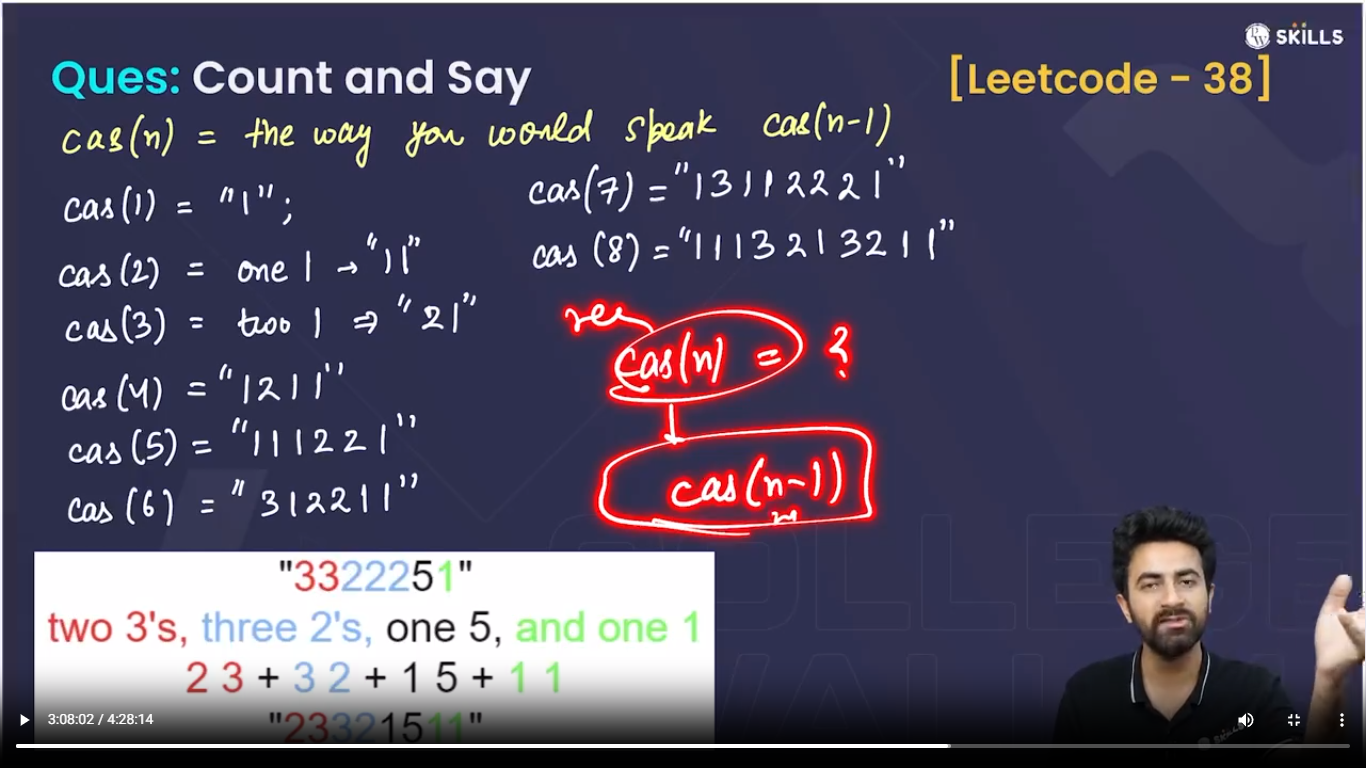 SKILLS
Ques: Count and Say
[Leetcode - 38]
cas(n) = the way you would speak cas(n-1)
cas(1) = "1";
cas(2) = one 1 → "11"
cas(3) = two 1 ⇒ "21"
cas(4) = "1211"
cas(5) = "111221"
cas(6) = "312211"
cas(7) = "13112221"
cas(8) = "1113213211"
cas(n) = ?
cas(n-1)
"3322251"
two 3's, three 2's, one 5, and one 1
2 3 + 3 2 + 1 5 + 1 1
"23321511"
3:08:02 / 4:28:14